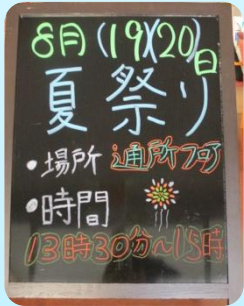 8月(19)(20)日
夏祭り
・場所 通所フロア
・時間
13時30分～15時